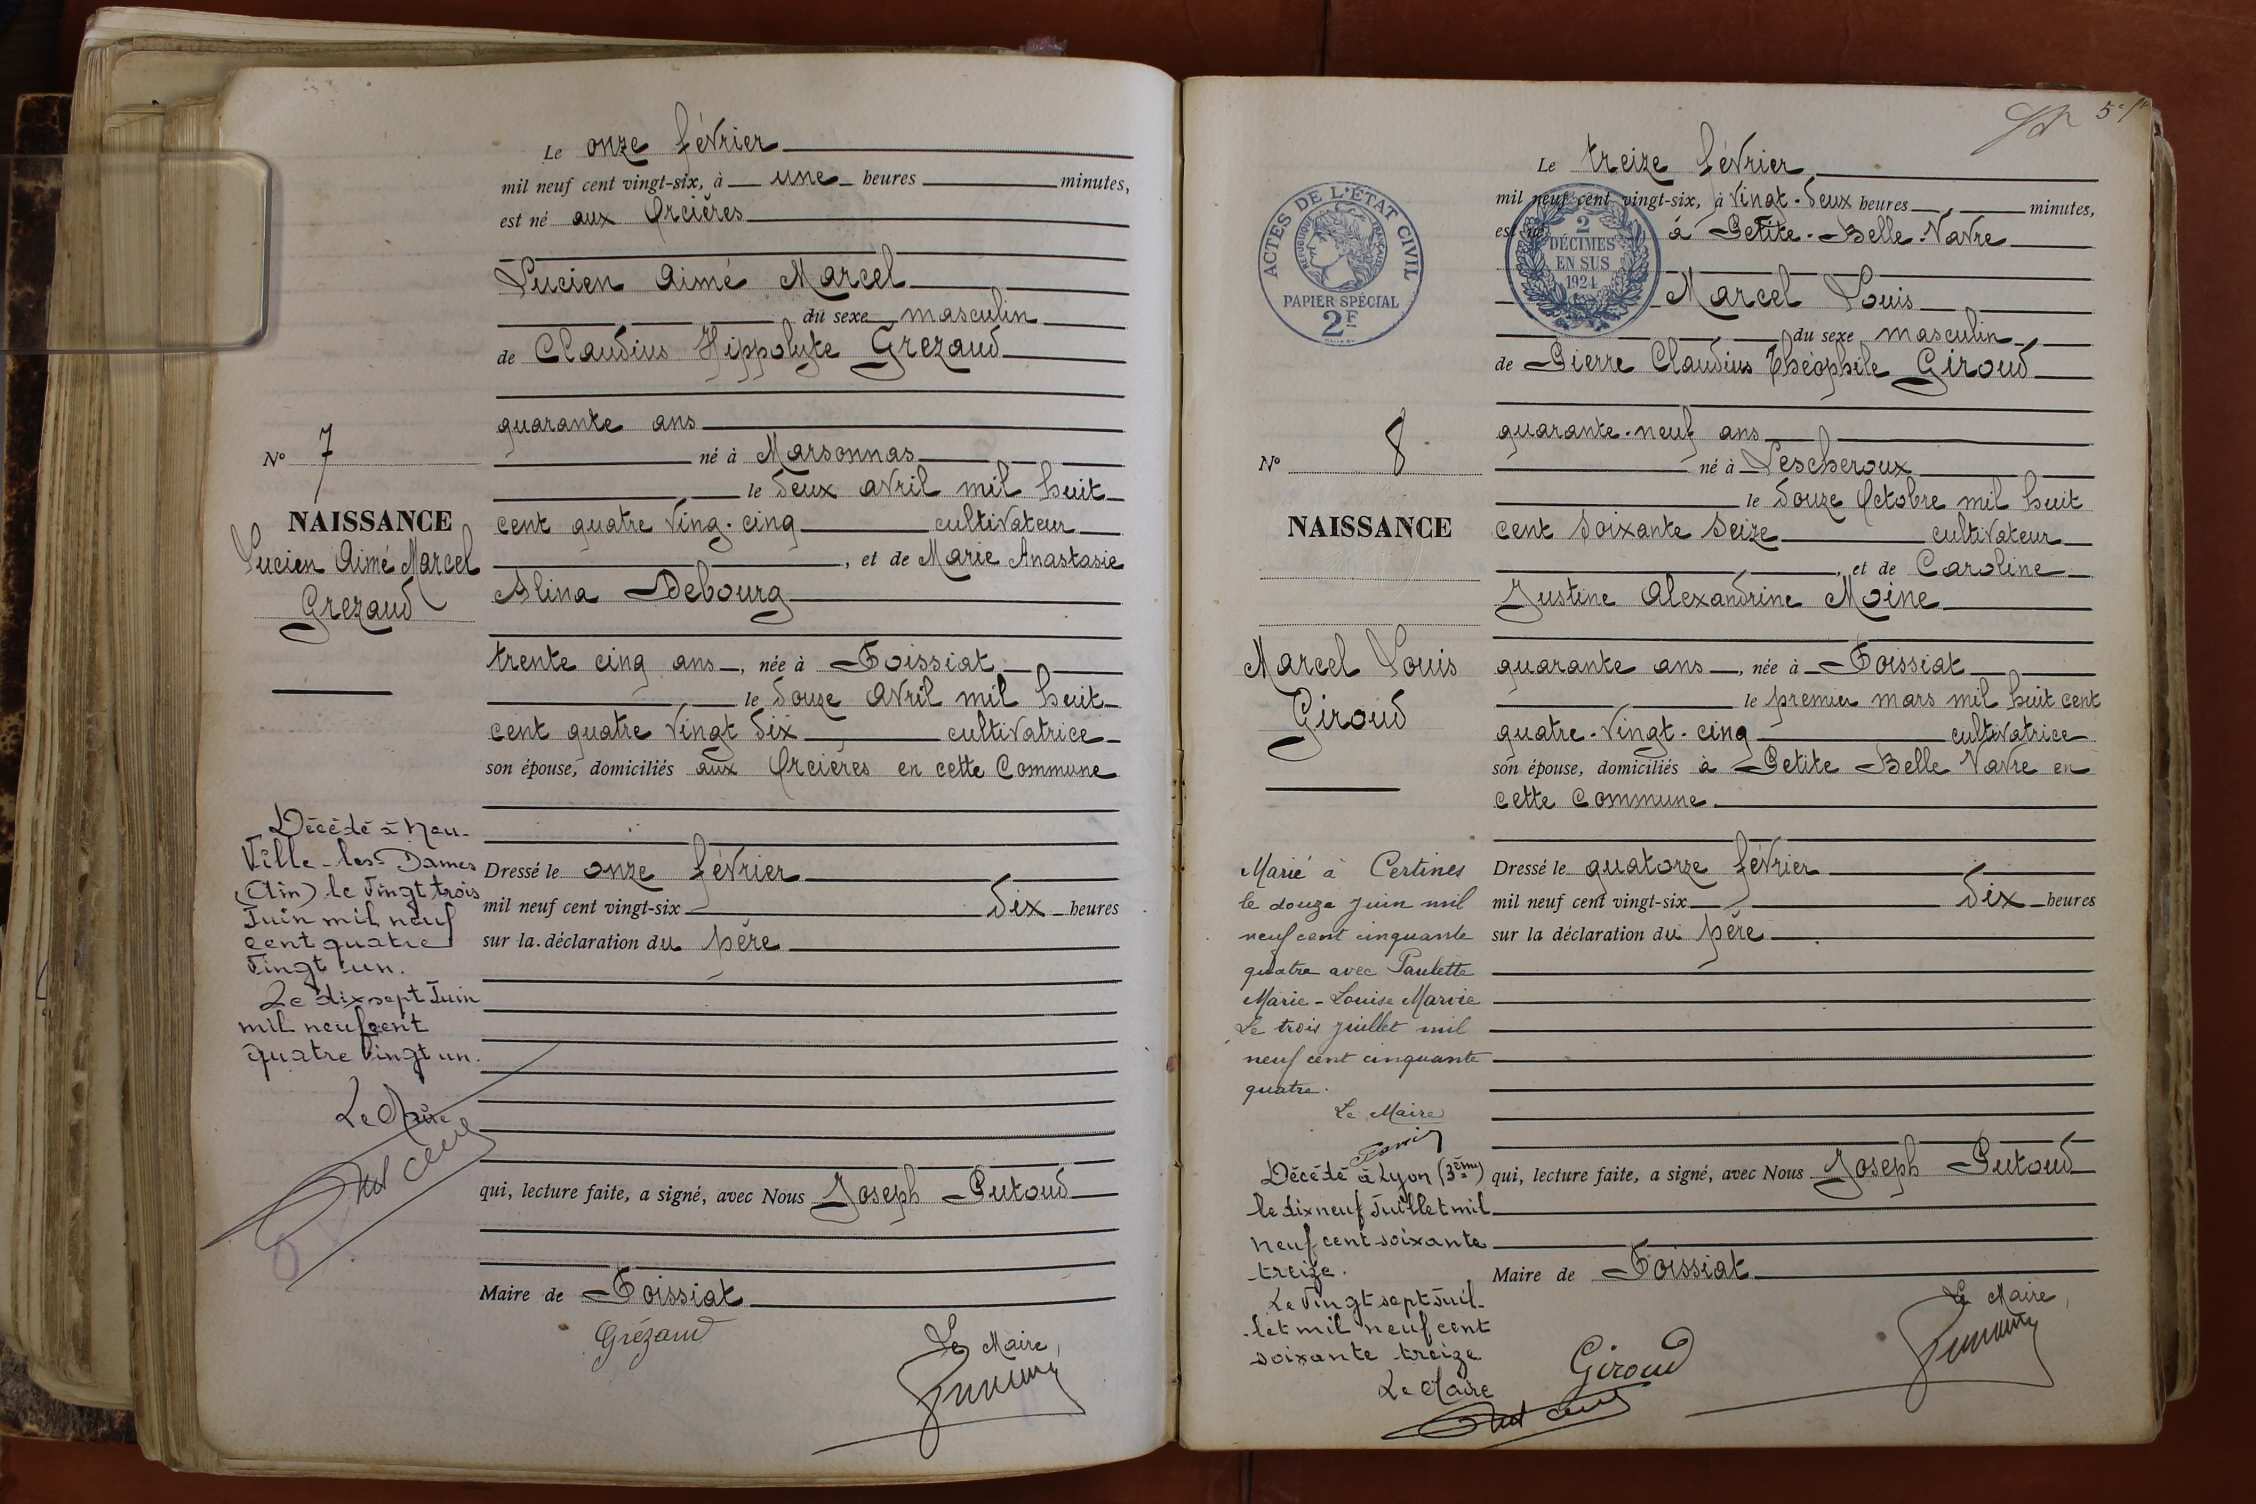 Le onze février
mil neuf cent vingt-six, à une heures minutes,
est né aux Orcières
Lucien Aimé Marcel
du sexe masculin
de Claudius Hippolyte Grezaud
quarante ans
né à Marsonnas
le deux avril mil huit
cent quatre ving-cinq cultivateur
, et de Marie Anastasie
Alina Debourg
trente cinq ans, née à Foissiat
le douze avril mil huit
cent quatre vingt dix cultivatrice
son épouse, domiciliés aux Orcières en cette Commune
Dressé le onze février
mil neuf cent vingt-six dix heures
sur la déclaration du père
qui, lecture faite, a signé, avec Nous Joseph Putoud
Maire de Foissiat
Grézaud
Le Maire,
No 7
NAISSANCE
Lucien Aimé Marcel
Grezaud
Décédé à Neu-
ville-les-Dames
(Ain) le vingt trois
Juin mil neuf
cent quatre
vingt un.
Le dix sept Juin
mil neuf cent
quatre vingt un.
Le Maire
5
ACTES DE L'ÉTAT CIVIL
RÉPUBLIQUE FRANÇAISE
PAPIER SPÉCIAL
2F
2
DÉCIMES
EN SUS
1924
Le treize février
mil neuf cent vingt-six, à vingt-deux heures minutes,
est né à Petite-Belle-Vavre
Marcel Louis
du sexe masculin
de Pierre Claudius Théophile Giroud
quarante-neuf ans
né à Lescheroux
le douze Octobre mil huit
cent soixante seize cultivateur
, et de Caroline
Justine Alexandrine Moine
quarante ans, née à Foissiat
le premier mars mil huit cent
quatre-vingt-cinq cultivatrice
son épouse, domiciliés à Petite Belle Vavre en
cette Commune
Dressé le quatorze février
mil neuf cent vingt-six dix heures
sur la déclaration du père
qui, lecture faite, a signé, avec Nous Joseph Putoud
Maire de Foissiat
Giroud
Le Maire,
No 8
NAISSANCE
Marcel Louis
Giroud
Marié à Certines
le douze juin mil
neuf cent cinquante
quatre avec Paulette
Marie-Louise Marvie
Le trois juillet mil
neuf cent cinquante
quatre.
Le Maire
Décédé à Lyon (3ème)
le dix neuf Juillet mil
neuf cent soixante
treize.
Le vingt sept Juil-
let mil neuf cent
soixante treize
Le Maire